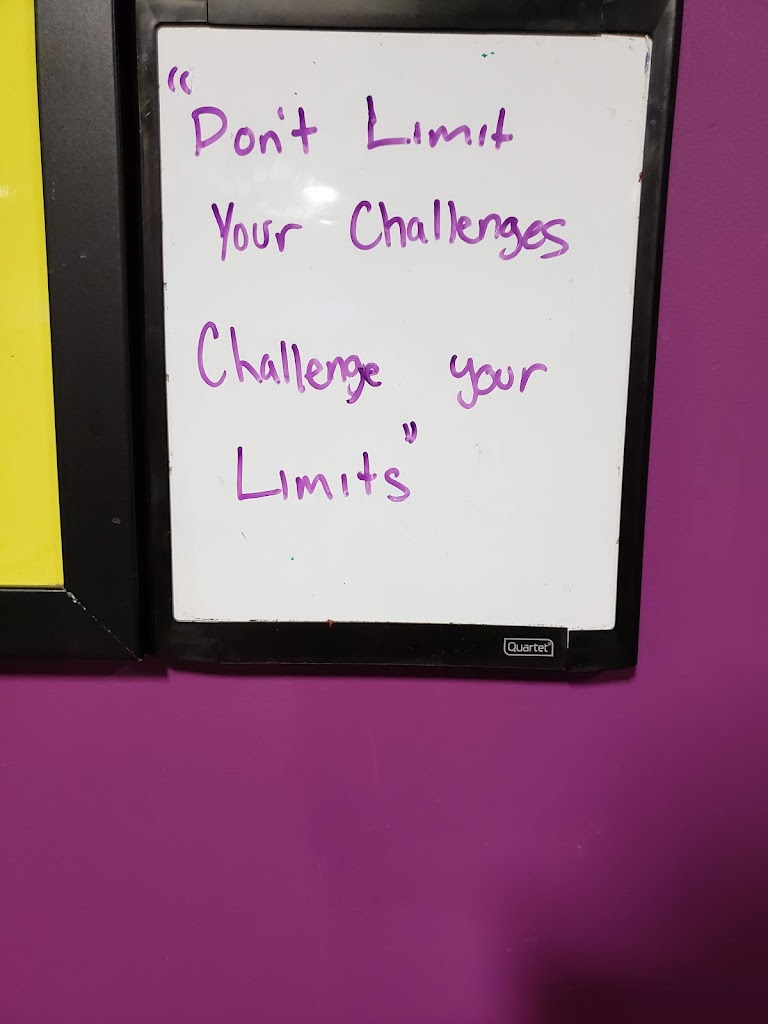 "Don't Limit
Your Challenges
Challenge your
Limits"
Quartet